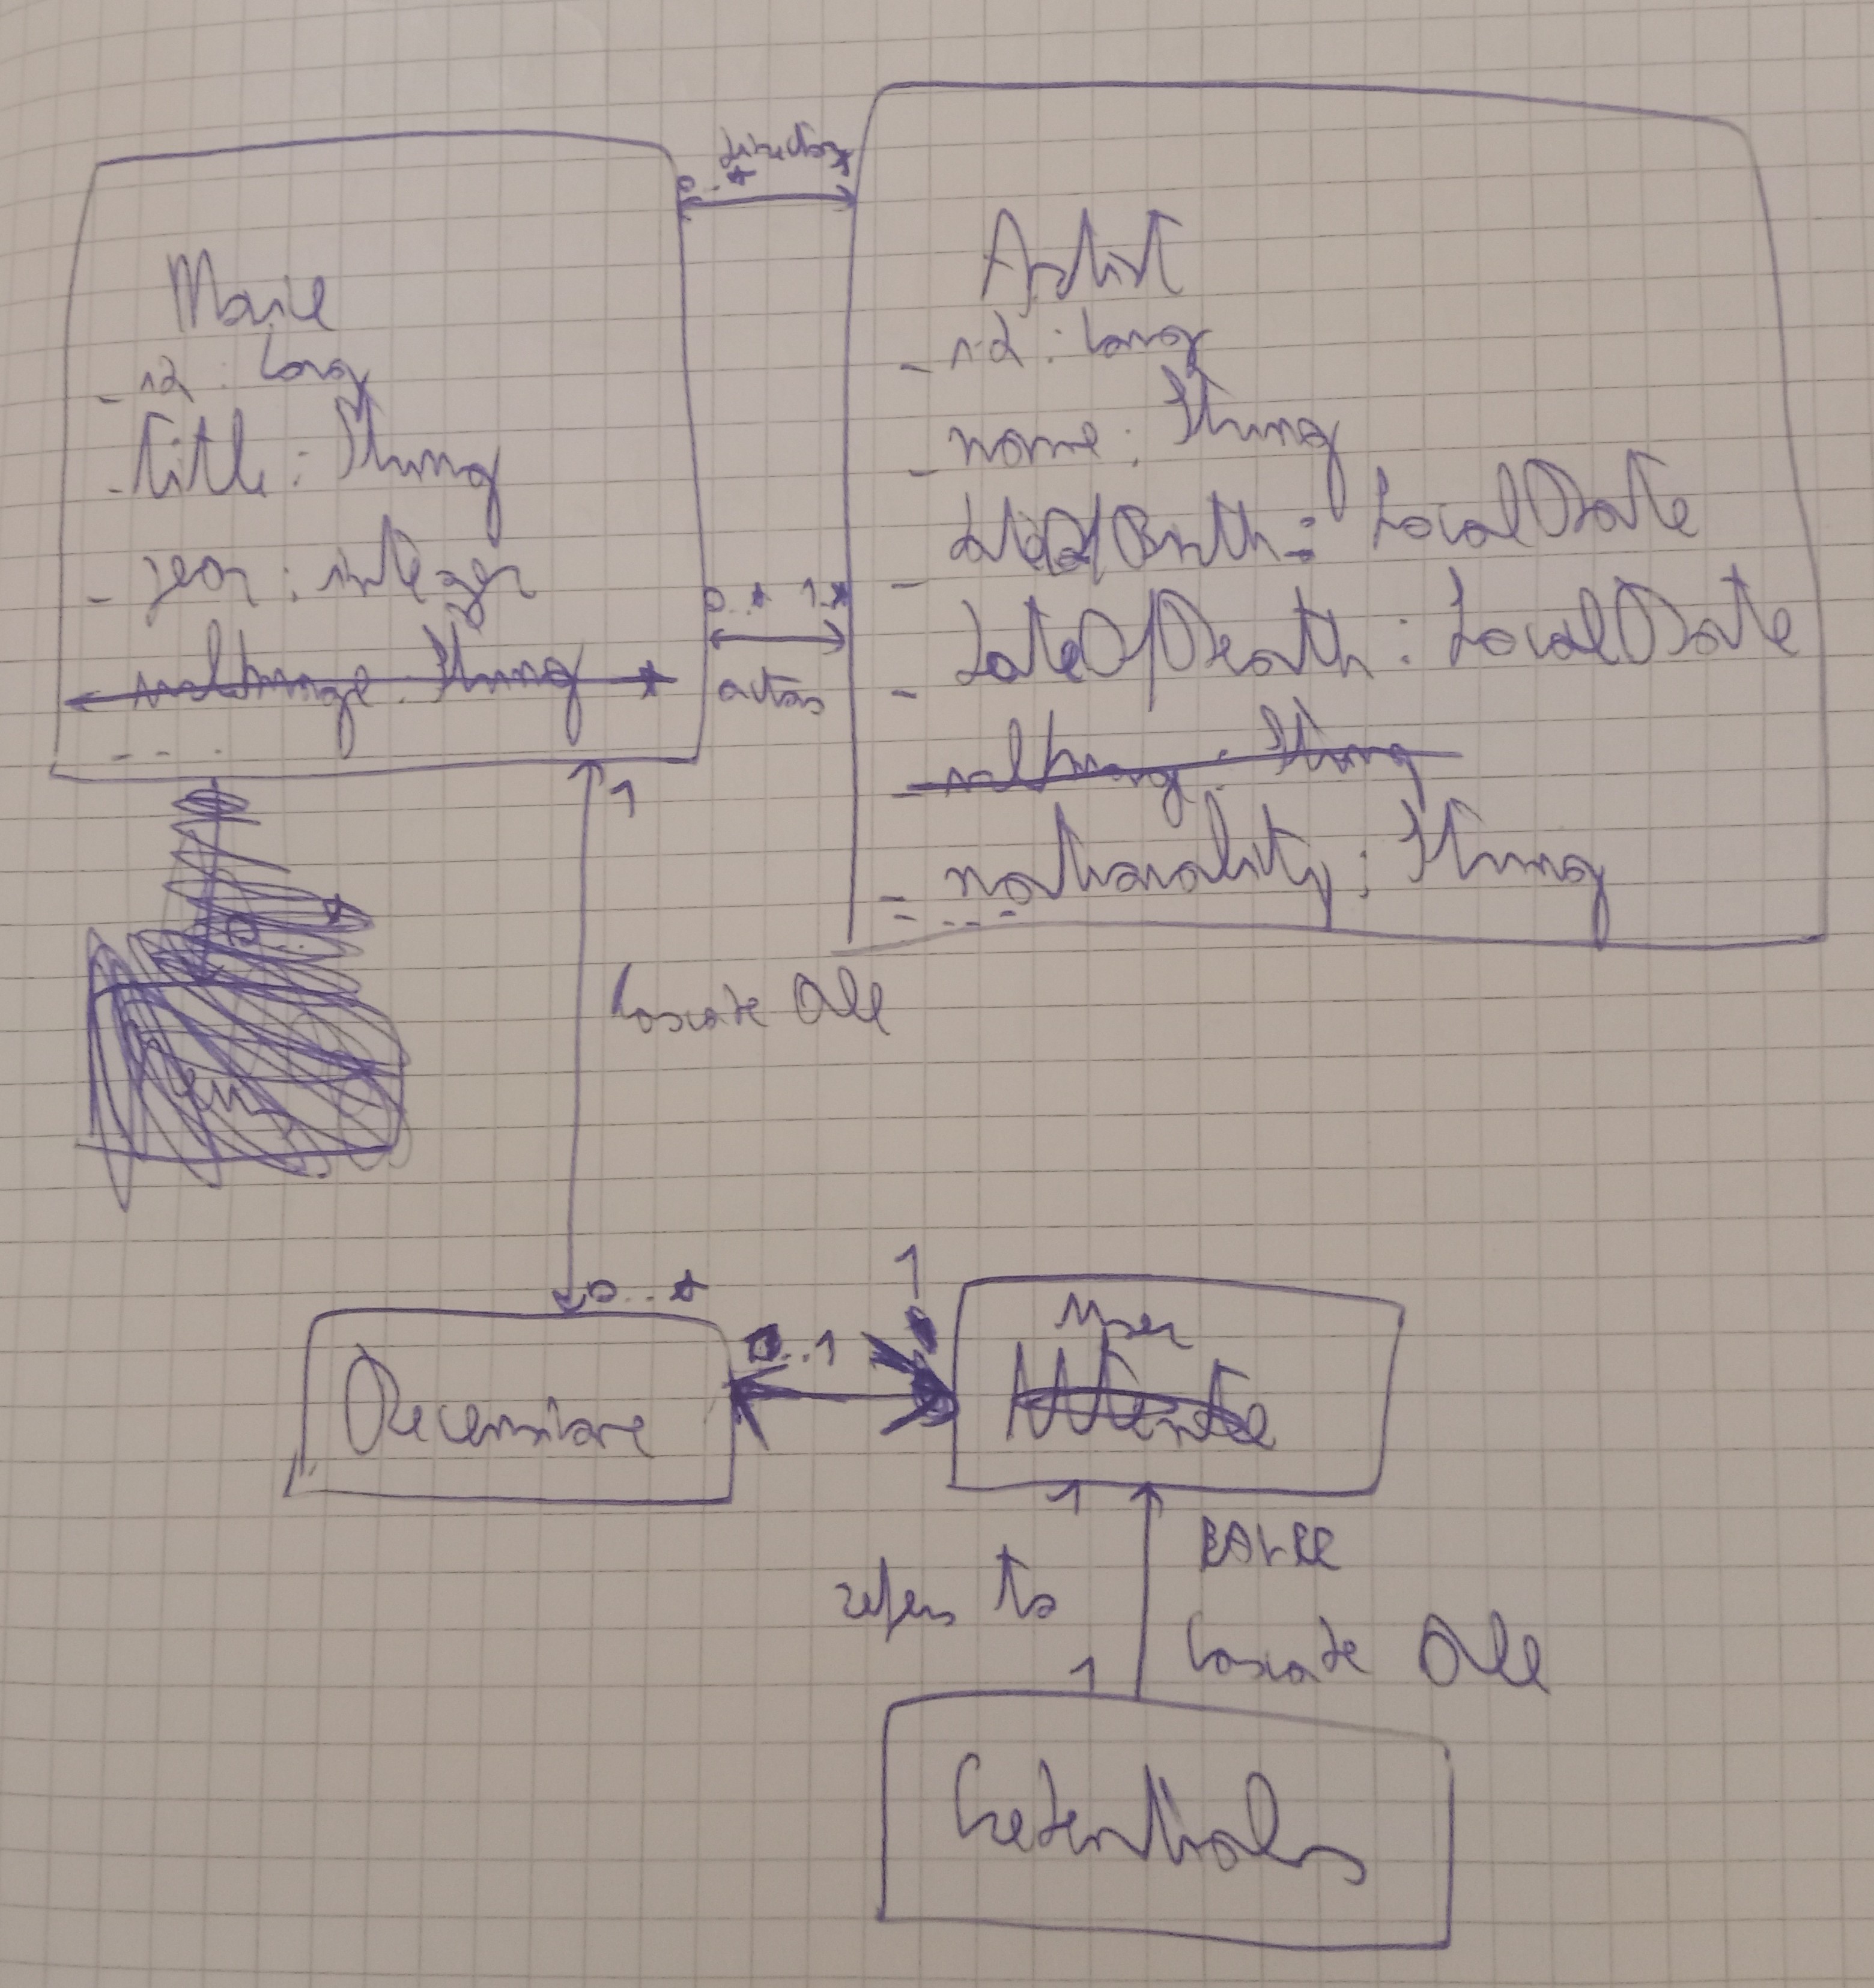 director
0..*
*
Movie
- id : Long
- title : String
- year : integer
- urlImage : String
- - - .
0..* 1..*
actors
Artist
- id : Long
- name : String
- dateOfBirth : LocalDate
- dateOfDeath : LocalDate
- urlImmag : String
- nationality : String
- ....
1
Cascade All
0..*
Recensione
0..1
1
User
Utente
1
refers to
EAGER
Cascade All
1
Credentials